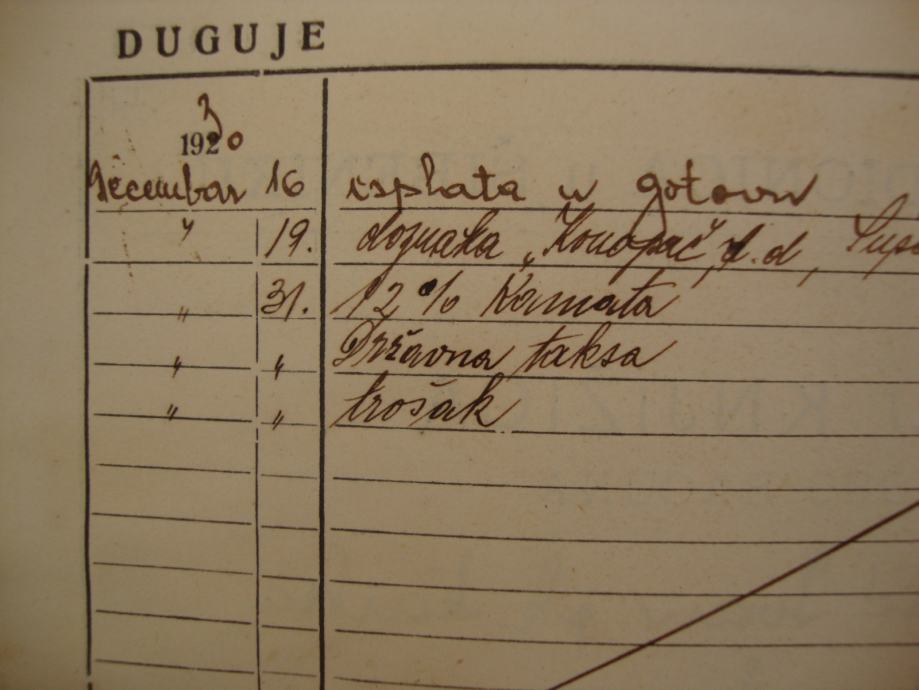 DUGUJE
1930
Decembar 16 isplata u gotovu
" 19. doznaka „Konopač“ d.d,
" 31. 12% Kamata
" " Državna taksa
" " trošak